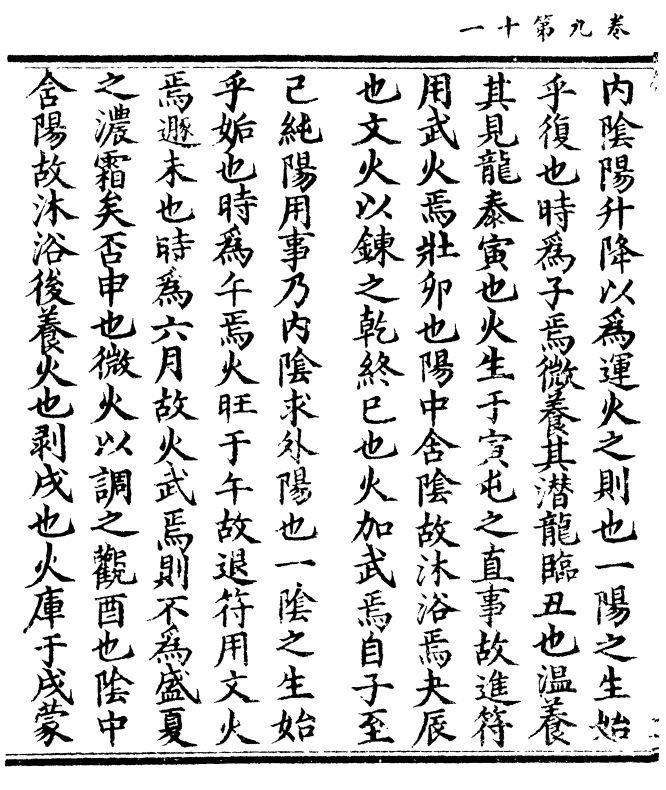 卷九第十一
內陰陽升降以爲運火之則也一陽之生始
乎復也時爲子焉微養其潛龍臨丑也溫養
其見龍泰寅也火生于寅屯之直事故進符
用武火焉壯卯也陽中含陰故沐浴焉夬辰
也文火以鍊之乾終巳也火加武焉自子至
己純陽用事乃內陰求外陽也一陰之生始
乎姤也時爲午焉火旺于午故退符用文火
焉遯未也時爲六月故火武焉則不爲盛夏
之濃霜矣否申也微火以調之觀酉也陰中
含陽故沐浴後養火也剥戌也火庫于戌蒙